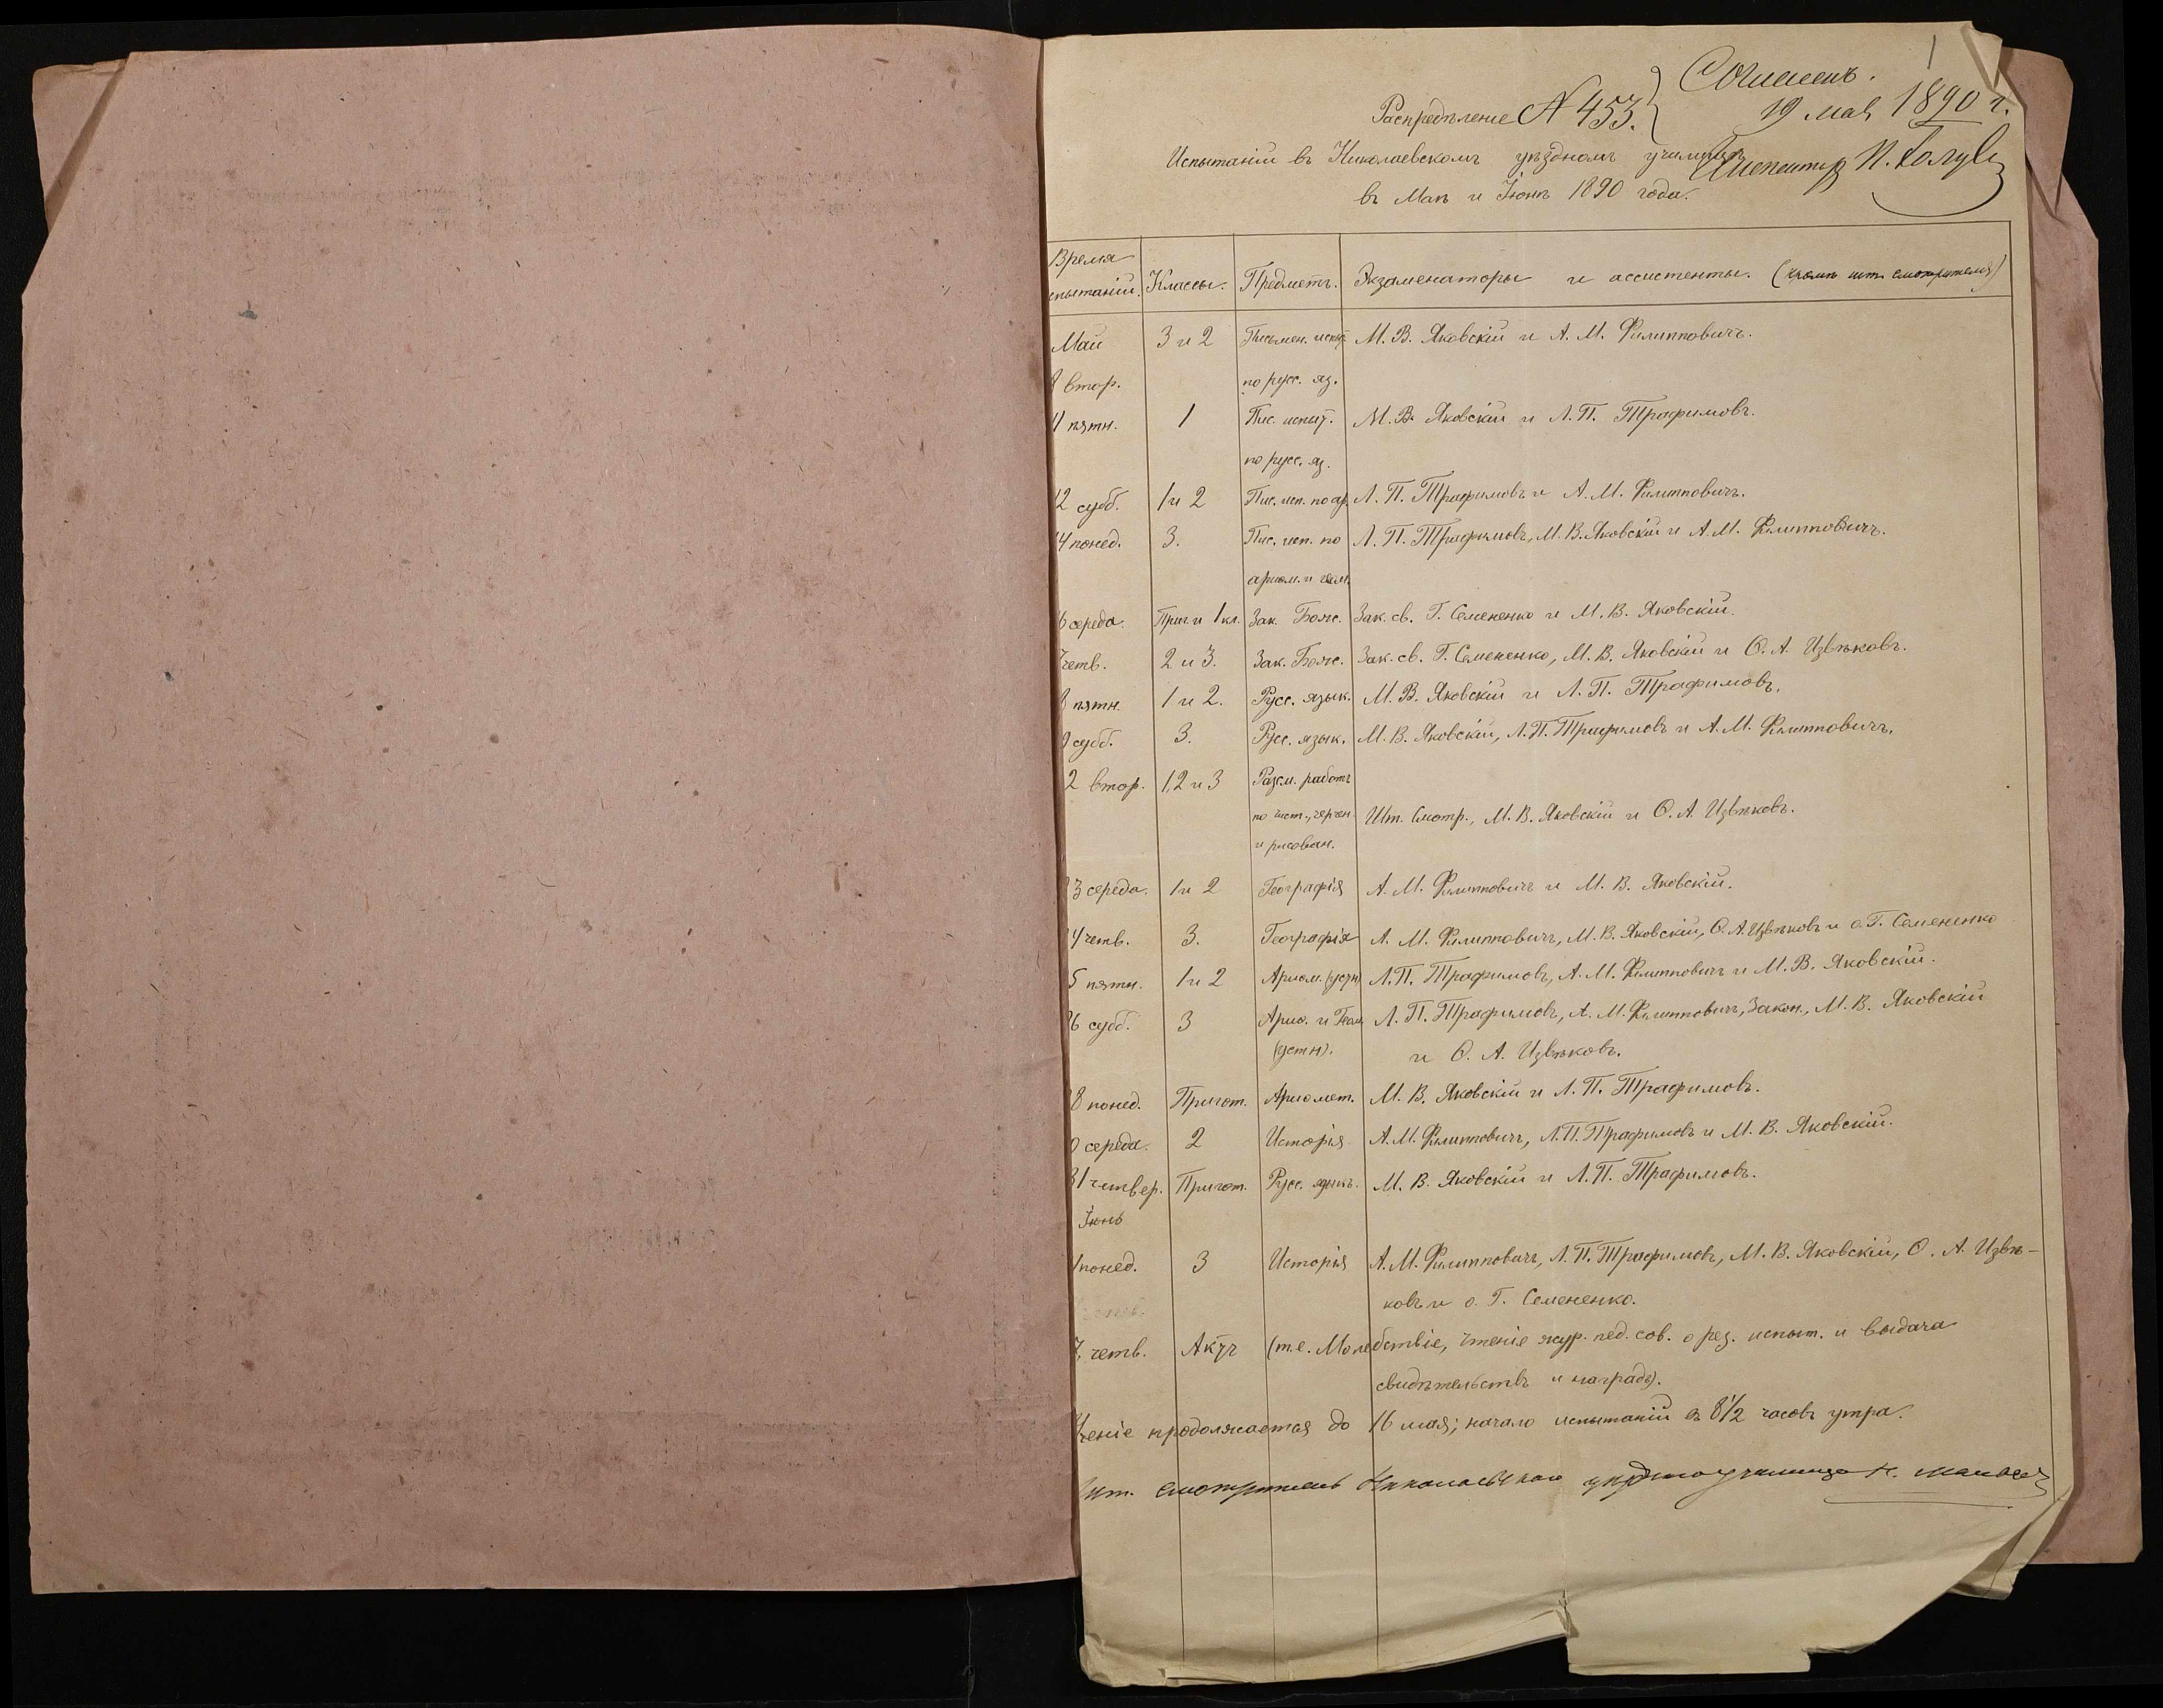 1
Распредѣленіе № 453. Согласенъ.
19 мая 1890 г.
Испытаній въ Николаевскомъ уѣздномъ училищѣ Инспекторъ
въ Маѣ и Іюнѣ 1890 года.
Время испытаній. Классы. Предметъ. Экзаменаторы и ассистенты. (кромѣ шт. смотрителя)
Май 3 и 2 Письмен. испыт. М. В. Яковскій и А. М. Филипповичъ.
8 втор. по русс. яз.
11 пятн. 1 Пис. испыт. М. В. Яковскій и Л. П. Трафимовъ.
по русс. яз.
12 субб. 1 и 2 Пис. исп. по ар. Л. П. Трафимовъ и А. М. Филипповичъ.
14 понед. 3. Пис. исп. по Л. П. Трафимовъ, М. В. Яковскій и А. М. Филипповичъ.
ариѳм. и геом.
6 середа. Приг. и 1 кл. Зак. Божс. Зак. св. Г. Семененко и М. В. Яковскій.
четв. 2 и 3. Зак. Божс. Зак. св. Г. Семененко, М. В. Яковскій и О. А. Извѣковъ.
8 пятн. 1 и 2. Русс. язык. М. В. Яковскій и Л. П. Трафимовъ.
9 субб. 3. Русс. язык. М. В. Яковскій, Л. П. Трафимовъ и А. М. Филипповичъ.
2 втор. 1, 2 и 3 Разсм. работъ
по чист., черчен. Шт. Смотр., М. В. Яковскій и О. А. Извѣковъ.
и рисован.
3 середа. 1 и 2 Географія А. М. Филипповичъ и М. В. Яковскій.
4 четв. 3. Географія А. М. Филипповичъ, М. В. Яковскій, О. А. Извѣковъ и о. Г. Семененко
5 пятн. 1 и 2 Ариѳм. (устн) Л. П. Трафимовъ, А. М. Филипповичъ и М. В. Яковскій.
6 субб. 3 Ариѳ. и Геом. Л. П. Трафимовъ, А. М. Филипповичъ, Закон., М. В. Яковскій
(устн). и О. А. Извѣковъ.
8 понед. Пригот. Ариѳмет. М. В. Яковскій и Л. П. Трафимовъ.
0 середа. 2 Исторія А. М. Филипповичъ, Л. П. Трафимовъ и М. В. Яковскій.
31 четвер. Пригот. Русс. языкъ. М. В. Яковскій и Л. П. Трафимовъ.
Іюнь
понед. 3 Исторія А. М. Филипповичъ, Л. П. Трафимовъ, М. В. Яковскій, О. А. Извѣ-
ковъ и о. Г. Семененко.
7, четв. Актъ (т. е. Молебствіе, чтеніе жур. пед. сов. о рез. испыт. и выдача
свидѣтельствъ и наградъ).
Ученіе продолжается до 16 мая; начало испытаній въ 8 1/2 часовъ утра.
Шт. смотритель Николаевскаго уѣзднаго училища